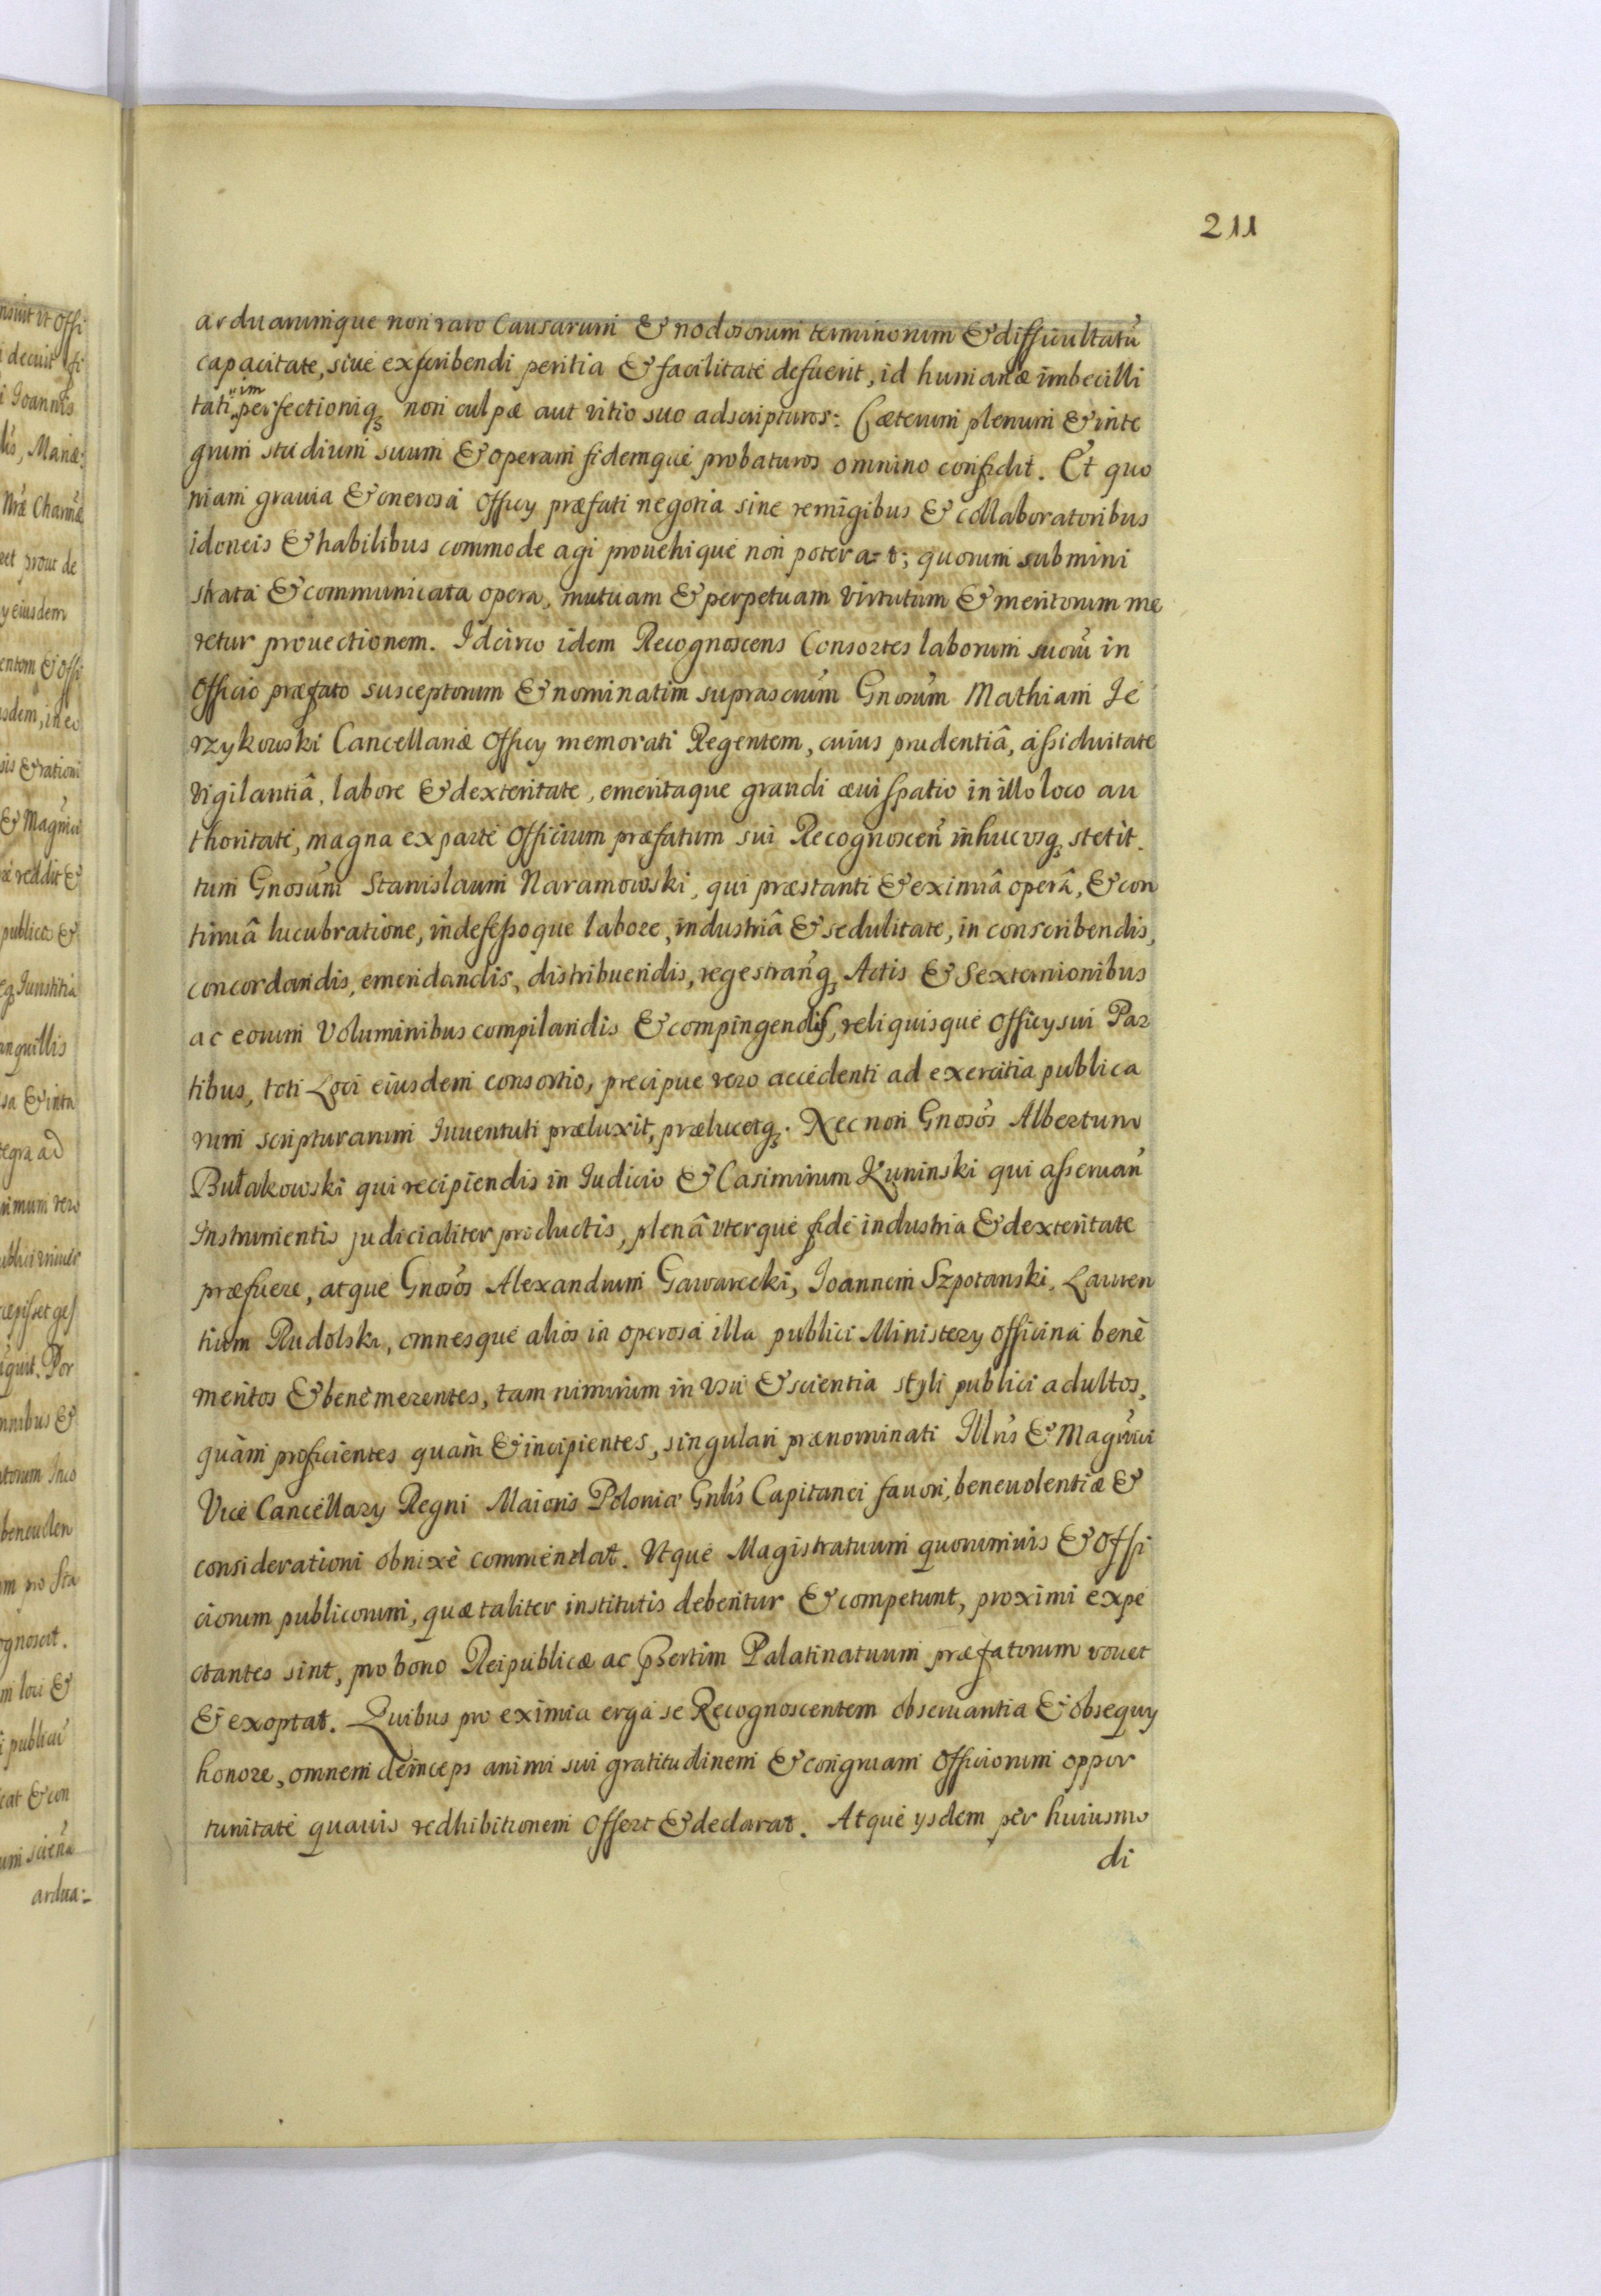 211
arduarumque non raro Causarum & nodosorum terminorum & difficultatũ
capacitate, siue exscribendi peritia & facilitate defuerit, id humanæ imbecilli
tati im perfectioniq₃ non culpæ aut vitio suo adscripturos: Cæterum plenum & inte
grum studium suum & operam fidemque probaturos omnino confidit. Et quo
niam grauia & onerosa Officy præfati negotia sine remigibus & collaboratoribus
idoneis & habilibus commode agi prouehique non potera=t; quorum submini
strata & communicata opera, mutuam & perpetuam virtutum & meritorum me
retur prouectionem. Idcirco idem Recognoscens Consortes laborum suorũ in
Officio præfato susceptorum & nominatim suprascrũm Gnosũm Mathiam Je
rzykowski Cancellariæ Officy memorati Regentem, cuius prudentiâ, assiduitate
vigilantiâ, labore & dexteritate, emeritaque grandi æui spatio in illo loco au
thoritate, magna ex parte Officium præfatum sui Recognoscen̄ inhucusq₃ stetit.
tum Gnosũm Stanislaum Naramowski, qui præstanti & eximiâ operâ, & con
tinuâ lucubratione, indefessoque labore, industriâ & sedulitate, in conscribendis,
concordandis, emendandis, distribuendis, regestran̄q₃ Actis & Sexternionibus
ac eorum Voluminibus compilandis & compingendis, reliquisque Officy sui Par
tibus, toti Loci eiusdem consortio, precipue vero accedenti ad exercitia publica
rum scripturarum Iuuentuti præluxit, prælucetq₃. Nec non Gnosōs Albertum
Bułakowski qui recipiendis in Iudicio & Casimirum Kuninski qui asseruan̄
Instrumentis judicialiter productis, plenâ vterque fide industria & dexteritate
præfuere, atque Gnosōs Alexandrum Gawarecki, Joannem Szpotanski, Lauren
tium Rudolski, omnesque alios in operosa illa publici Ministery officina benè
meritos & benè merentes, tam nimirum in vsu & scientia styli publici adultos,
quàm proficientes quam & incipientes, singulari prænominati Illrīs & Magn̄ici
Vice Cancellary Regni Maioris Poloniæ Gnlīs Capitanei fauori, beneuolentiæ &
considerationi obnixè commendat. Vtque Magistratuum quorumuis & Offi
ciorum publicorum, quæ taliter institutis debentur & competunt, proximi expe
ctantes sint, pro bono Reipublicæ ac psertim Palatinatuum præfatorum vouet
& exoptat. Quibus pro eximia erga se Recognoscentem obseruantia & obsequy
honore, omnem deinceps animi sui gratitudinem & congruam Officiorum oppor
tunitate quauis redhibitionem offert & declarat. Atque ysdem per huiusmo
di